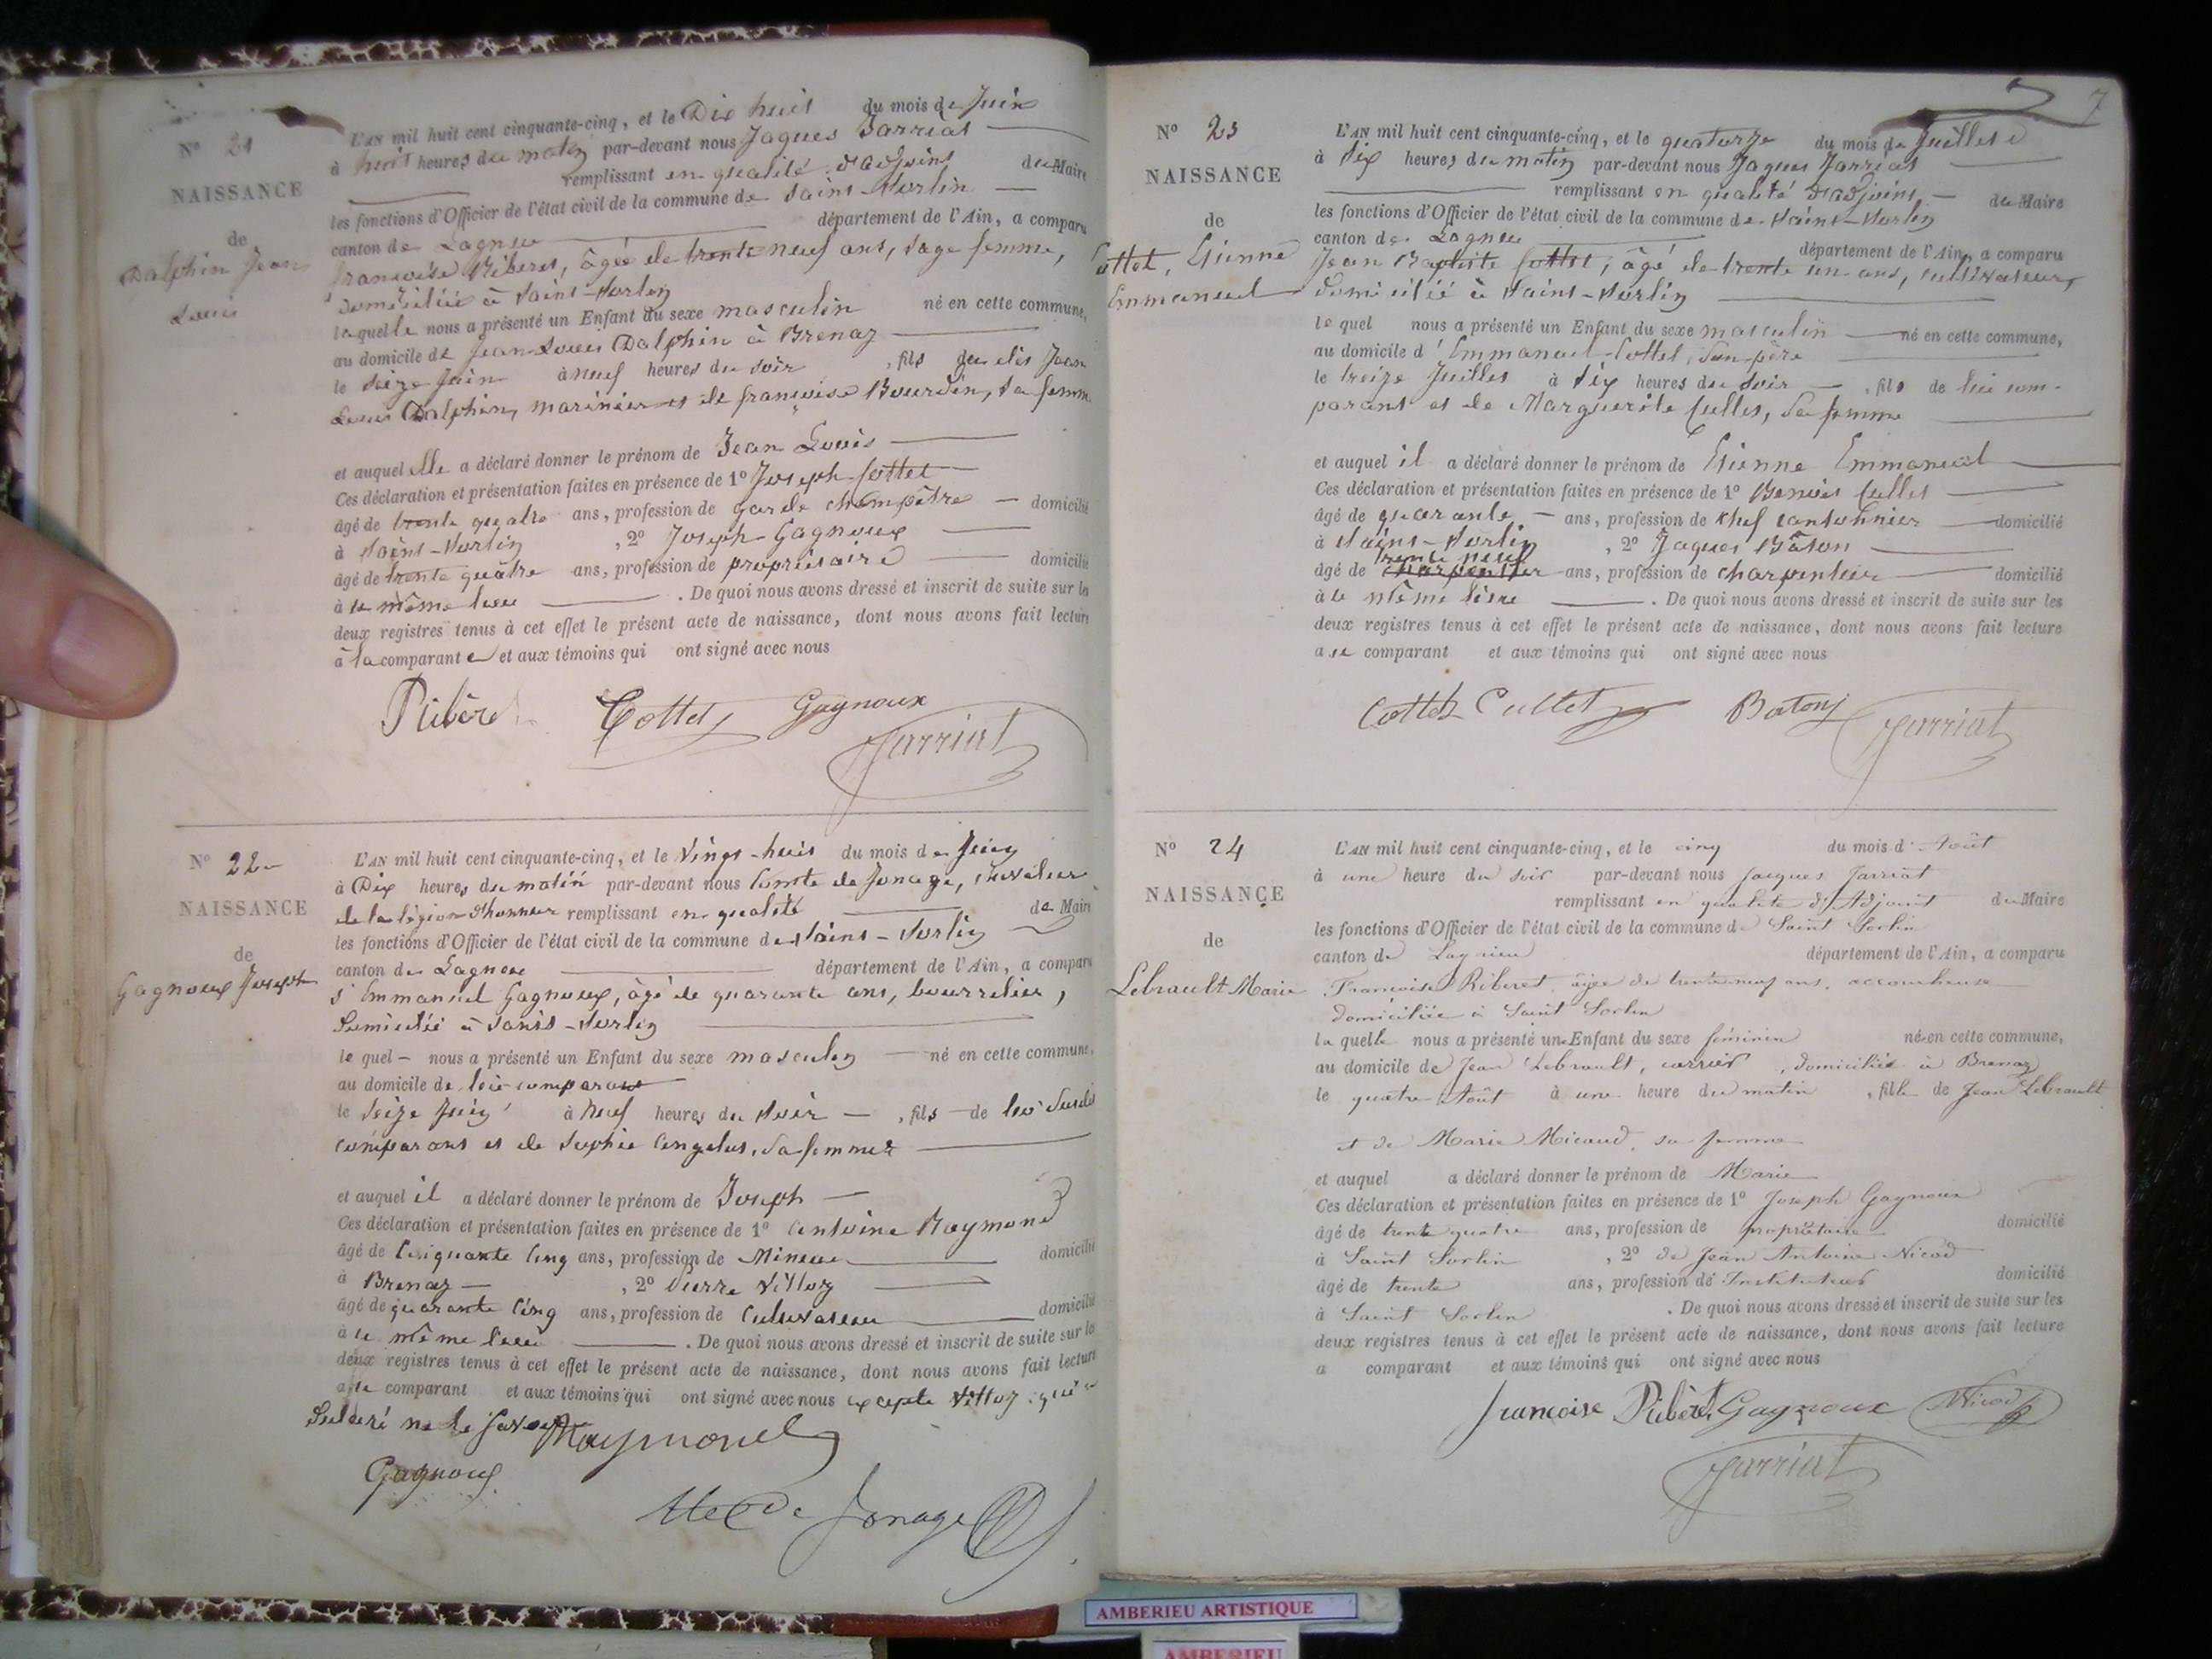 N° 21
NAISSANCE
de
Dalphin Jean
Louis
L'AN mil huit cent cinquante-cinq, et le Dix huit du mois de Juin
à huit heures du matin par-devant nous Jaques Jarriat
remplissant en qualité d'adjoint du Maire
les fonctions d'Officier de l'état civil de la commune de Saint-Sorlin
canton de Lagnieu département de l'Ain, a comparu
françoise Riberet, âgée de trente neuf ans, sage femme,
domiciliée à Saint-Sorlin
laquelle nous a présenté un Enfant du sexe masculin né en cette commune,
au domicile de Jean Louis Dalphin à Brenaz
le seize Juin à neuf heures du soir, fils du dit Jean
Louis Dalphin, marinier et de françoise Bourdin, sa femme
et auquel elle a déclaré donner le prénom de Jean Louis
Ces déclaration et présentation faites en présence de 1° Joseph Cottet
âgé de trente quatre ans, profession de garde champêtre domicilié
à Saint-Sorlin, 2° Joseph Gagnoux
âgé de trente quatre ans, profession de propriétaire domicilié
à le même lieu. De quoi nous avons dressé et inscrit de suite sur les
deux registres tenus à cet effet le présent acte de naissance, dont nous avons fait lecture
à la comparante et aux témoins qui ont signé avec nous
Ribère Cottet Gagnoux
Jarriat
N° 22
NAISSANCE
de
Gagnoux Joseph
L'AN mil huit cent cinquante-cinq, et le Vingt-huit du mois de Juin
à Dix heures du matin par-devant nous Comte de Jonage, chevalier
de la légion d'honneur remplissant en qualité de Maire
les fonctions d'Officier de l'état civil de la commune de Saint-Sorlin
canton de Lagnieu département de l'Ain, a comparu
s' Emmanuel Gagnoux, âgé de quarante ans, bourrelier,
domicilié à Saint-Sorlin
le quel nous a présenté un Enfant du sexe masculin né en cette commune,
au domicile de lui comparant
le seize Juin à neuf heures du soir, fils de lui
comparant et de Sophie sa femme
et auquel il a déclaré donner le prénom de Joseph
Ces déclaration et présentation faites en présence de 1° Antoine Raymond
âgé de Cinquante Cinq ans, profession de Mineur domicilié
à Brenaz, 2° Pierre Vittoz
âgé de quarante Cinq ans, profession de Cultivateur domicilié
à le même lieu. De quoi nous avons dressé et inscrit de suite sur les
deux registres tenus à cet effet le présent acte de naissance, dont nous avons fait lecture
a le comparant et aux témoins qui ont signé avec nous excepté Vittoz qui a
déclaré ne le savoir Raymond
Gagnoux
de Jonage
7
N° 23
NAISSANCE
de
Cottet, Etienne
Emmanuel
L'AN mil huit cent cinquante-cinq, et le quatorze du mois de Juillet
à dix heures du matin par-devant nous Jaques Jarriat
remplissant en qualité d'adjoint du Maire
les fonctions d'Officier de l'état civil de la commune de Saint-Sorlin
canton de Lagnieu département de l'Ain, a comparu
Jean Baptiste Cottet, âgé de trente un ans, cultivateur,
domicilié à Saint-Sorlin
le quel nous a présenté un Enfant du sexe masculin né en cette commune,
au domicile d'Emmanuel Cottet, son père
le treize Juillet à dix heures du soir, fils de lui com-
parant et de Marguerite Cullet, sa femme
et auquel il a déclaré donner le prénom de Etienne Emmanuel
Ces déclaration et présentation faites en présence de 1° Benoit Cullet
âgé de quarante ans, profession de chef cantonnier domicilié
à Saint-Sorlin, 2° Jaques Bâton
âgé de trente neuf charpentier ans, profession de charpentier domicilié
à le même lieu. De quoi nous avons dressé et inscrit de suite sur les
deux registres tenus à cet effet le présent acte de naissance, dont nous avons fait lecture
a le comparant et aux témoins qui ont signé avec nous
Cottet Cullet Baton
Jarriat
N° 24
NAISSANCE
de
Lebrault Marie
L'AN mil huit cent cinquante-cinq, et le cinq du mois d'Août
à une heure du soir par-devant nous Jacques Jarriat
remplissant en qualité d'Adjoint du Maire
les fonctions d'Officier de l'état civil de la commune de Saint Sorlin
canton de Lagnieu département de l'Ain, a comparu
Françoise Riberet, âgée de trente neuf ans, accoucheuse
domiciliée à Saint Sorlin
la quelle nous a présenté une Enfant du sexe féminin née en cette commune,
au domicile de Jean Lebrault, carrier, domicilié à Brenaz
le quatre Août à une heure du matin, fille de Jean Lebrault
et de Marie Micaud, sa femme
et auquel a déclaré donner le prénom de Marie
Ces déclaration et présentation faites en présence de 1° Joseph Gagnoux
âgé de trente quatre ans, profession de propriétaire domicilié
à Saint Sorlin, 2° de Jean Antoine Nicod
âgé de trente ans, profession de Instituteur domicilié
à Saint Sorlin. De quoi nous avons dressé et inscrit de suite sur les
deux registres tenus à cet effet le présent acte de naissance, dont nous avons fait lecture
a comparant et aux témoins qui ont signé avec nous
françoise Ribèret Gagnoux Nicod
Jarriat
AMBERIEU ARTISTIQUE
AMBERIEU